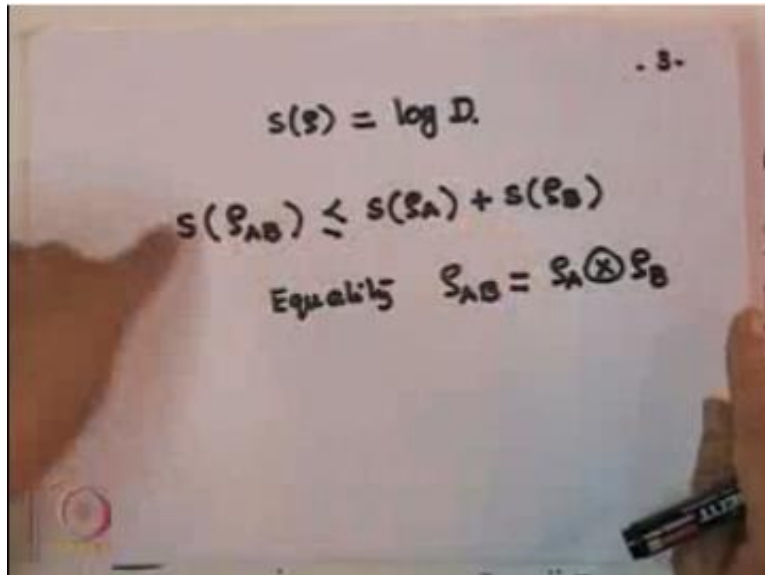 - 3 -
S(ρ) = log D.
S(ρ_AB) ≤ S(ρ_A) + S(ρ_B)
Equality ρ_AB = ρ_A ⊗ ρ_B